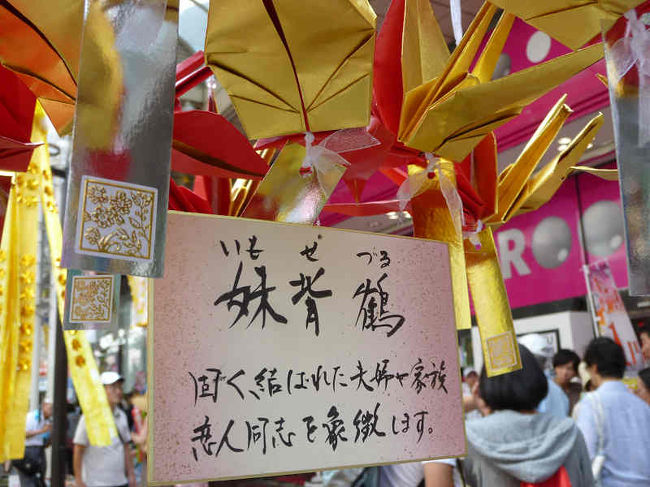 いもせ゛ づる
妹背鶴
固く、結ばれた夫婦や家族
恋人同志を象徴します。
RO